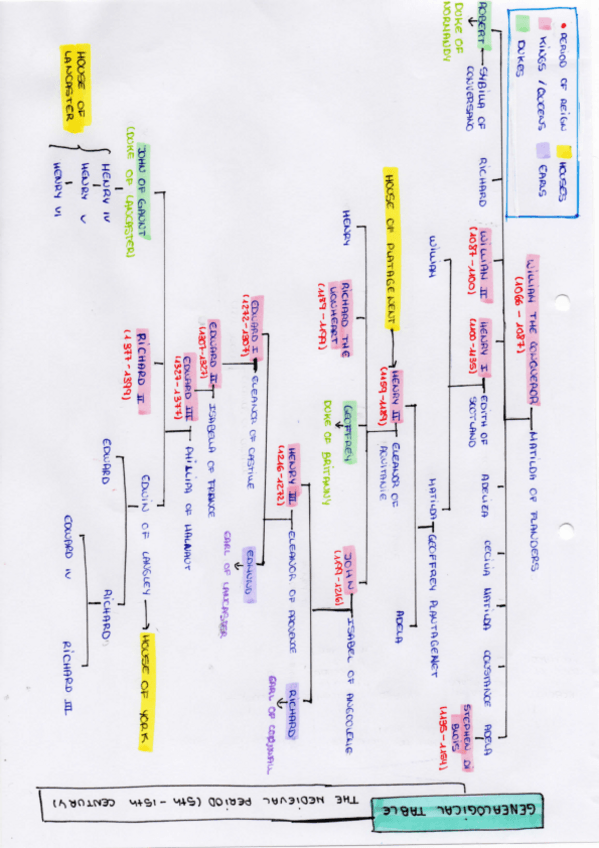 GENEALOGICAL TABLE
THE MEDIEVAL PERIOD (5th - 15th CENTURY)
• PERIOD OF REIGN
HOUSES
KINGS / QUEENS
EARLS
DUKES
WILLIAM THE CONQUEROR — MATILDA OF FLANDERS
(1066 - 1087)
ROBERT — SYBILLA OF CONVERSANO
DUKE OF NORMANDY
RICHARD
WILLIAM II
(1087-1100)
HENRY I — EDITH OF SCOTLAND
(1100-1135)
ADELIZA
CECILIA
MATILDA
CONSTANCE
ADELA
STEPHEN DI BLOIS
(1135-1154)
WILLIAM
MATILDA — GEOFFREY PLANTAGENET
ADELA
HOUSE OF PLATAGENENT
HENRY II — ELEANOR OF AQUITANIE
(1159-1189)
HENRY
RICHARD THE LIONHEART
(1189-1199)
GEOFFREY
DUKE OF BRITANNY
JOHN — ISABEL OF ANGOULENE
(1199-1216)
HENRY III — ELEANOR OF PROVENCE
(1216-1272)
RICHARD
EARL OF CORNWALL
EDWARD I — ELEANOR OF CASTILE
(1272-1307)
EDMUND
EARL OF LANCASTER
EDWARD II — ISABELLA OF FRANCE
(1307-1327)
EDWARD III — PHILLIPA OF HAINAUT
(1327-1377)
JOHN OF GAUNT
(DUKE OF LANCASTER)
RICHARD II
(1377-1399)
EDWIN OF LANGLEY
HOUSE OF YORK
HOUSE OF LANCASTER
HENRY IV
HENRY V
HENRY VI
EDWARD
RICHARD
EDWARD IV
RICHARD III